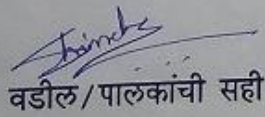 वडील/पालकांची सही